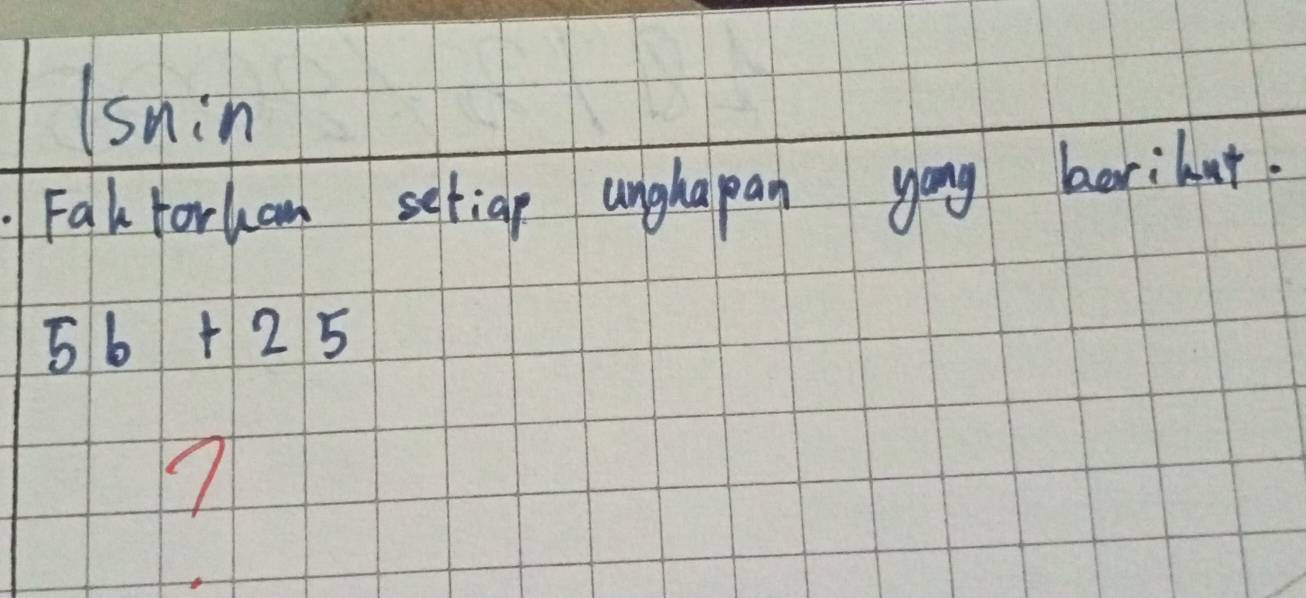 Isnin
. Faktorkan setiap ungkapan yang berikut.
5b + 25
?